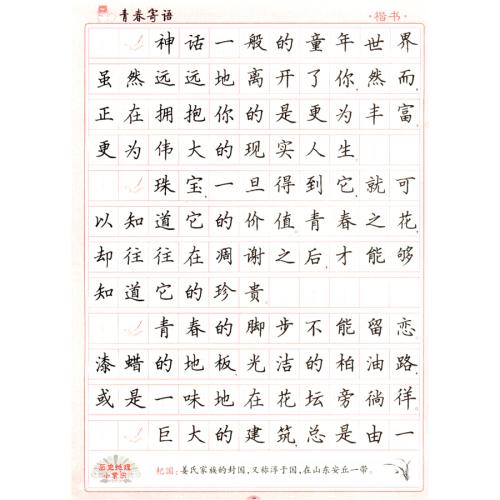 青春寄语
·楷书·
神话一般的童年世界
虽然远远地离开了你,然而
正在拥抱你的是更为丰富
更为伟大的现实人生
珠宝,一旦得到它,就可
以知道它的价值,青春之花,
却往往在凋谢之后,才能够
知道它的珍贵
青春的脚步不能留恋
漆蜡的地板,光洁的柏油路,
或是一味地在花坛旁徜徉。
巨大的建筑,总是由一
历史地理
小常识
杞国:姜氏家族的封国,又称淳于国,在山东安丘一带。